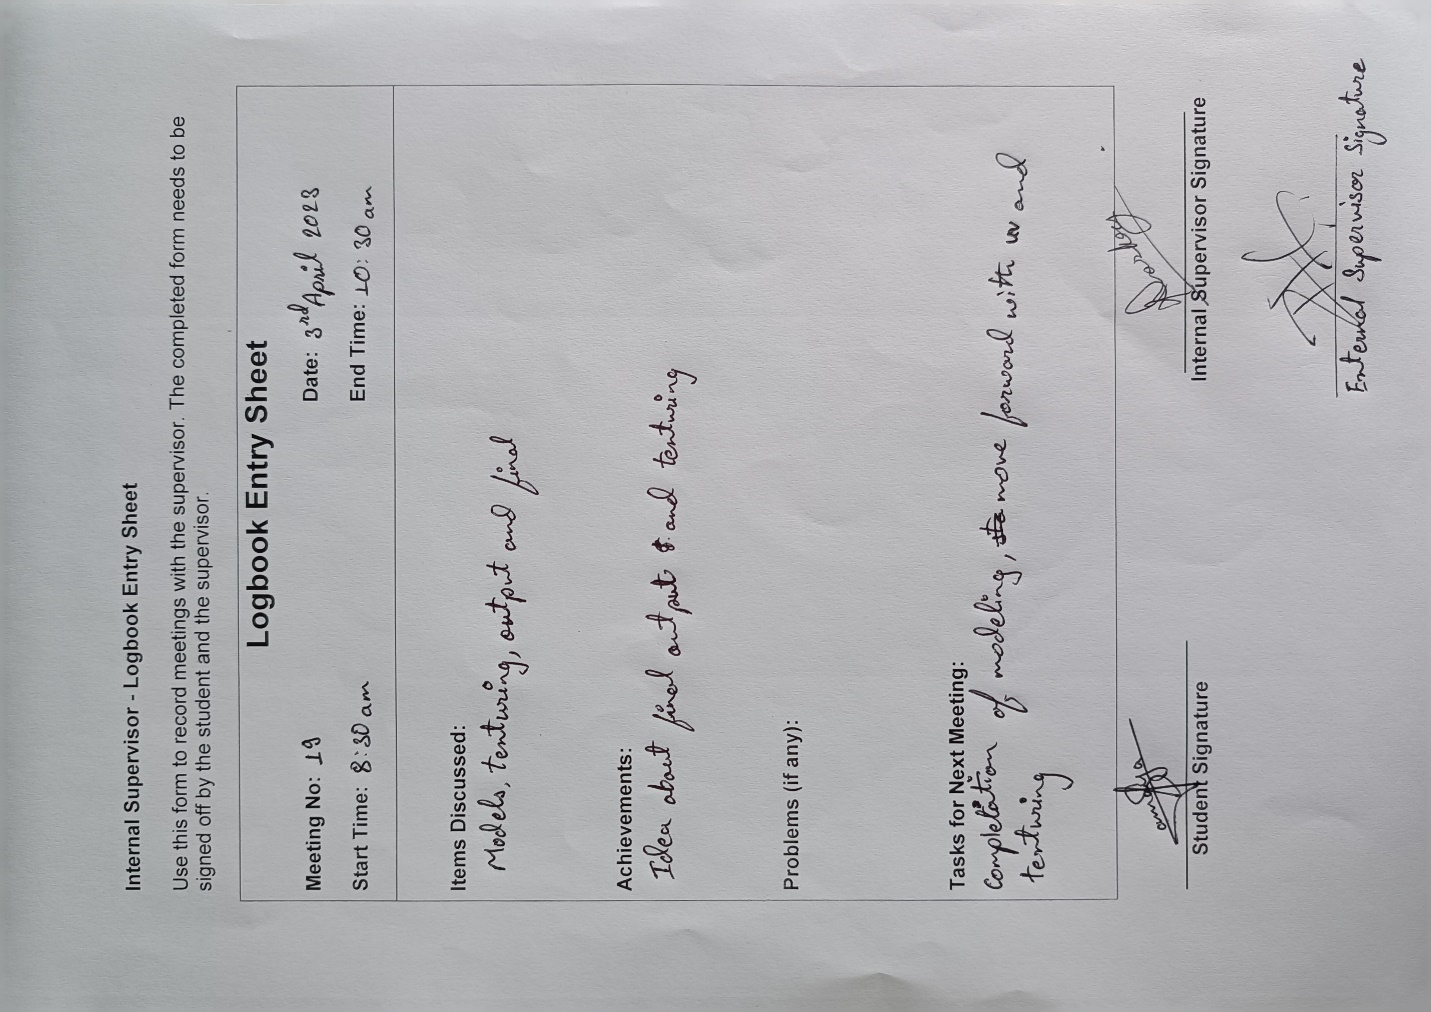 Internal Supervisor - Logbook Entry Sheet
Use this form to record meetings with the supervisor. The completed form needs to be
signed off by the student and the supervisor.
Logbook Entry Sheet
Meeting No: 19 Date: 3rd April 2023
Start Time: 8:30 am End Time: 10:30 am
Items Discussed:
Models, texturing, output and final
Achievements:
Idea about final output and texturing
Problems (if any):
Tasks for Next Meeting:
Completation of modeling, move forward with uv and
texturing
Student Signature Internal Supervisor Signature
External Supervisor Signature